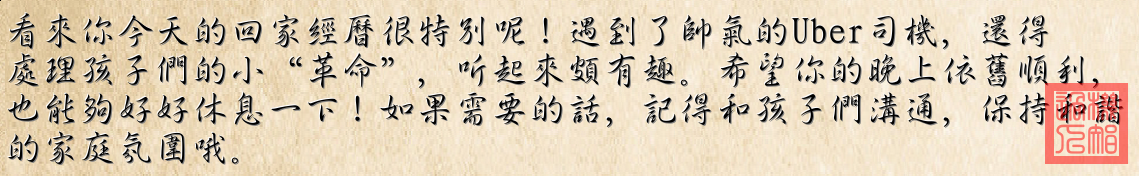 看來你今天的回家經曆很特別呢！遇到了帥氣的Uber司機，還得
處理孩子們的小“革命”，听起來頗有趣。希望你的晚上依舊順利，
也能夠好好休息一下！如果需要的話，記得和孩子們溝通，保持和諧
的家庭氛圍哦。